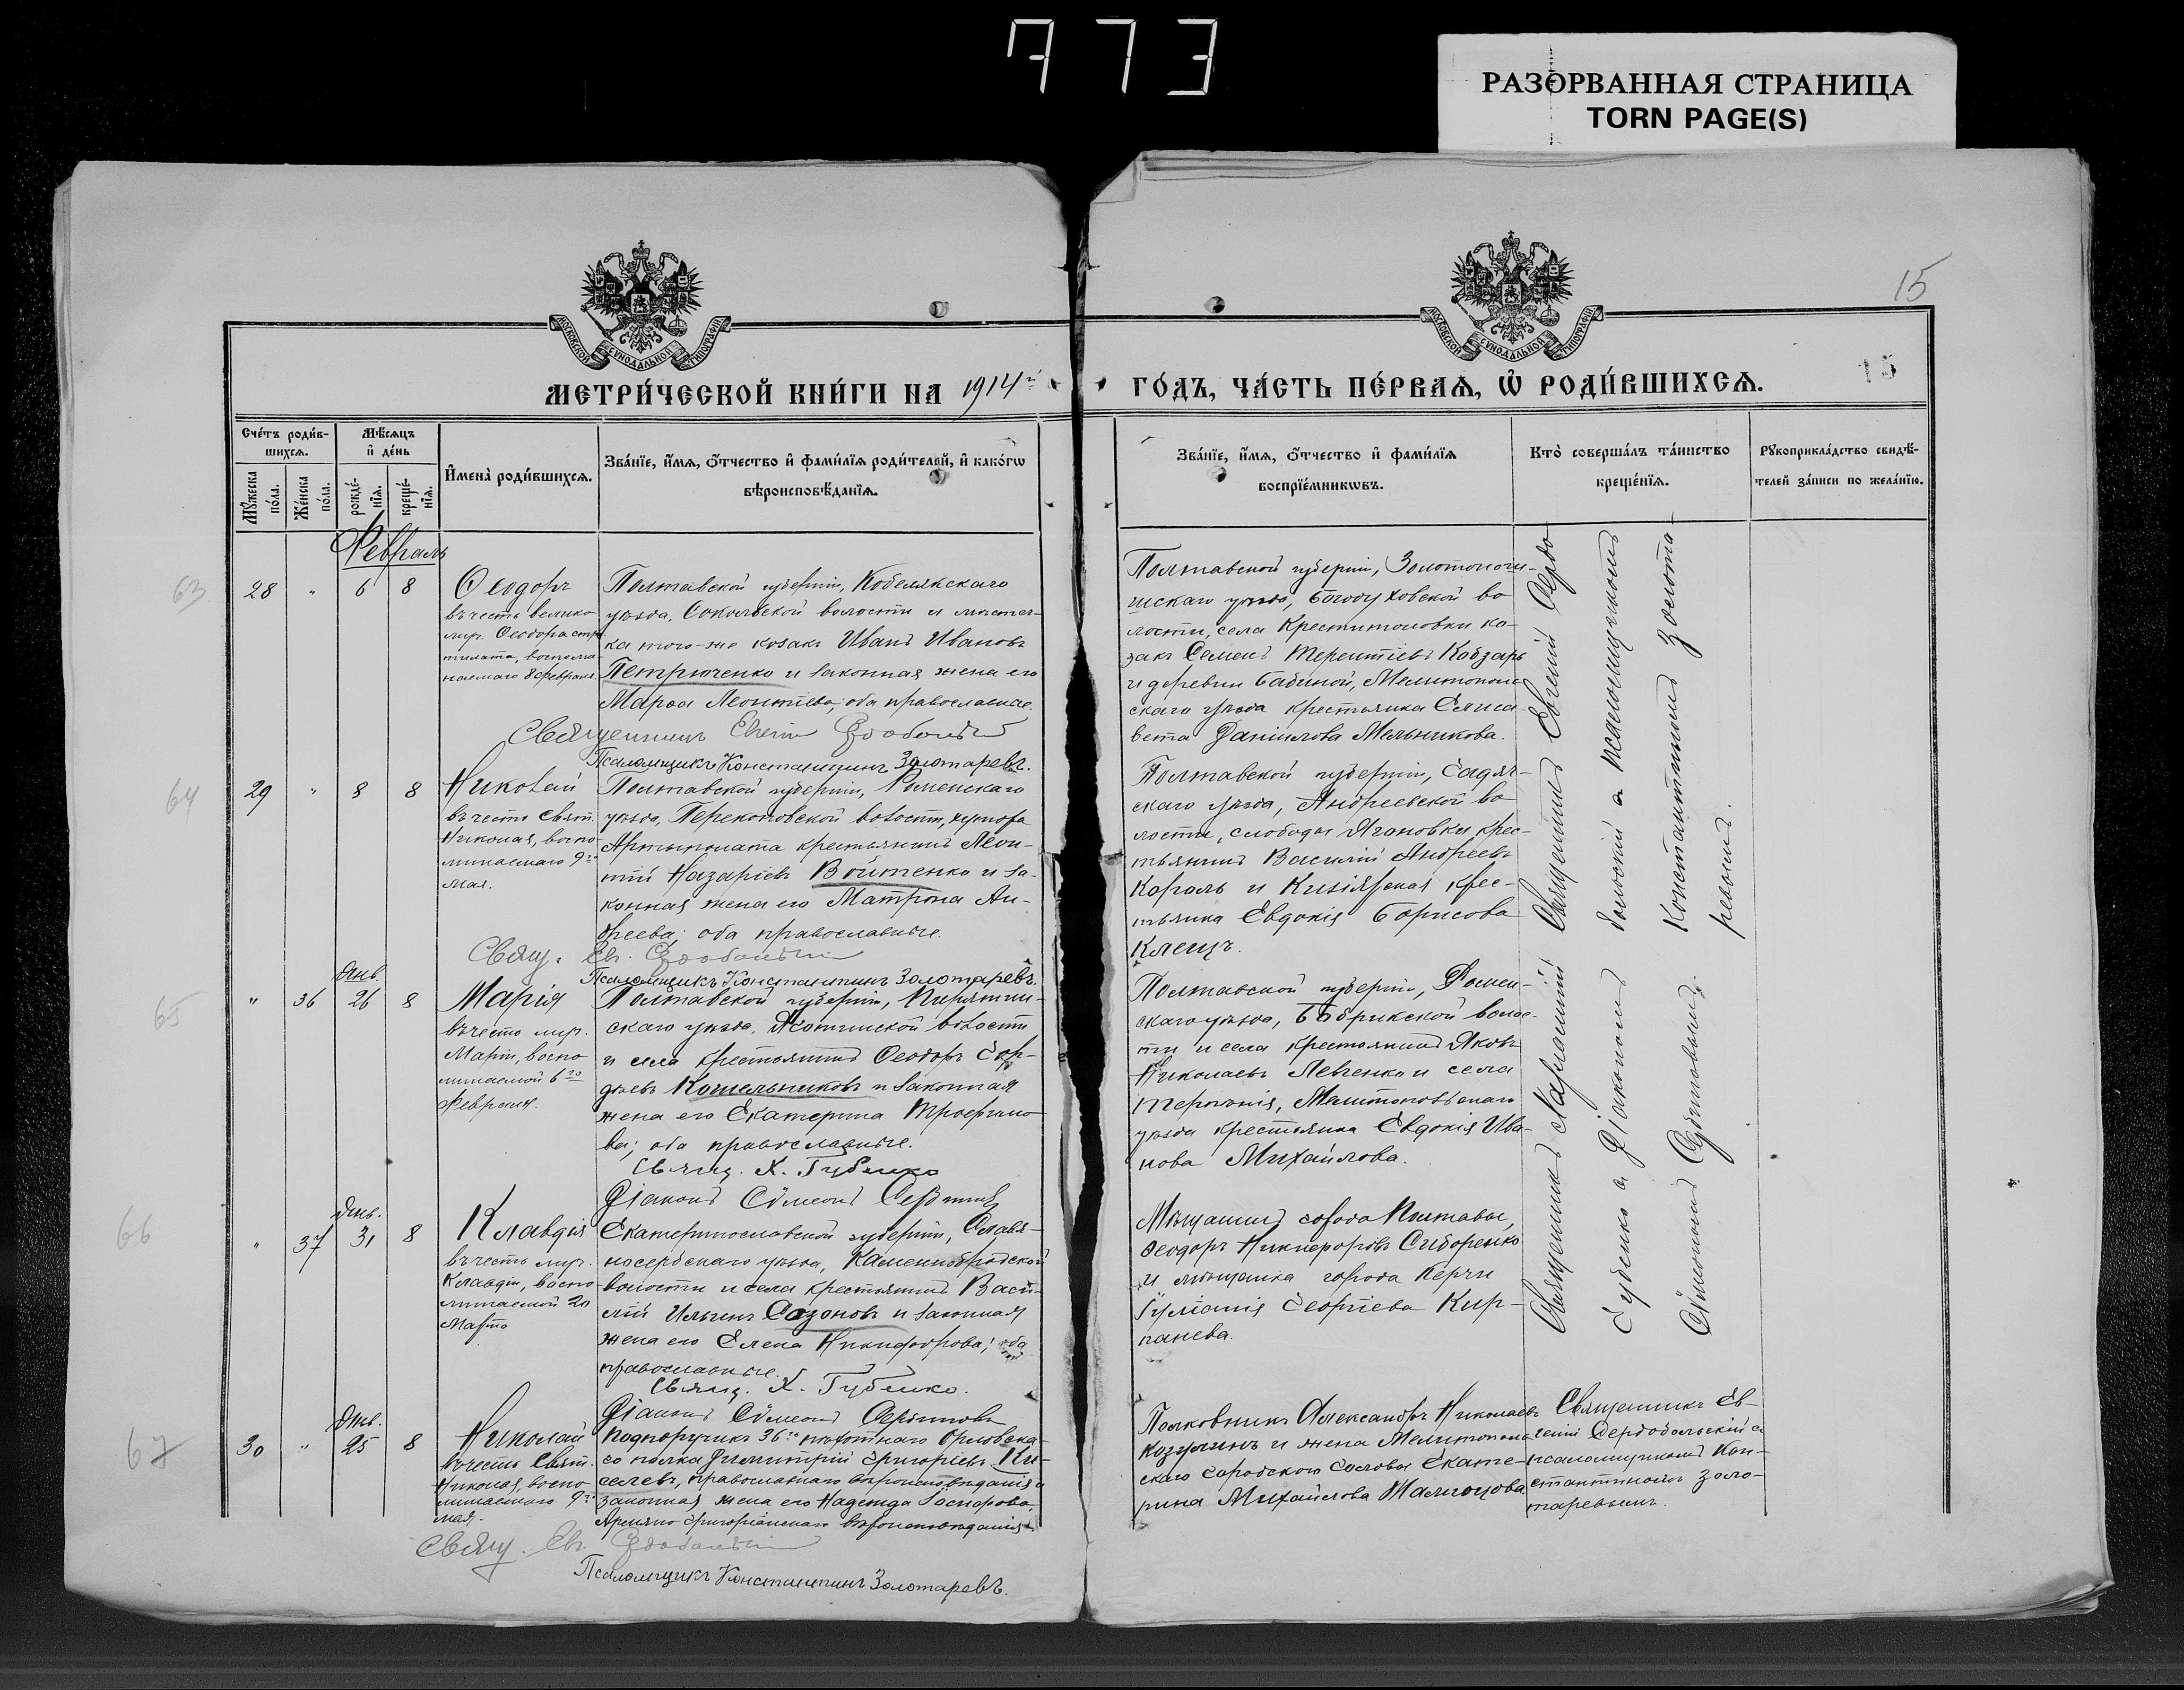 773
РАЗОРВАННАЯ СТРАНИЦА
TORN PAGE(S)
15
15
МОСКОВСКОЙ СѴНОДАЛЬНОЙ ТИПОГРАФІИ
МОСКОВСКОЙ СѴНОДАЛЬНОЙ ТИПОГРАФІИ
МЕТРИ́ЧЕСКОЙ КНИ́ГИ НА 1914й
ГО́ДЪ, ЧА́СТЬ ПЕ́РВАѦ, Ѽ РОДИ́ВШИХСѦ.
Сче́тъ роди́в-
шихсѧ.
Мѣ́сѧцъ
и҆ де́нь
Мꙋ́жеска
по́ла.
Же́нска
по́ла.
рожде́-
нїѧ.
креще́-
нїѧ.
И҆мена̀ роди́вшихсѧ.
Зва́нїе, и҆́мѧ, ѻ҆́тчество и҆ фами́лїѧ роди́телей, и҆ како́гѡ
вѣроисповѣ́данїѧ.
Зва́нїе, и҆́мѧ, ѻ҆́тчество и҆ фами́лїѧ
воспрїе́мникѡвъ.
Кто̀ соверша́лъ та́инство
креще́нїѧ.
Рꙋкоприкла́дство свидѣ́-
телей за́писи по жела́нїю.
Февраль
63 28 " 6 8
Ѳеодоръ
въ честь велико-
муч. Ѳеодора стра
тилата, воспоми-
наемаго 8 февраля.
Полтавской губерніи, Кобелякскаго
уѣзда, Сокольской волости и мѣстеч-
ка того-же козакъ Иванъ Ивановъ
Петрюченко и законная жена его
Марѳа Леонтіева, оба православные.
Священникъ Евгеній
Псаломщикъ Константинъ Золотаревъ.
Полтавской губерніи, Золотонош-
шскаго уѣзда, Богодуховской во
лости, села Крестителовки ко-
закъ Семенъ Терентіевъ Кобзарь
и деревни Бабиной, Мелитополь
скаго уѣзда крестьянка Елиса
вета Даніилова Мельникова.
64 29 " 8 8
Николай
въ честь Свят.
Николая, воспо-
минаемаго 9го
мая.
Полтавской губерніи, Роменскаго
уѣзда, Перекоповской волости, хутора
Артополата крестьянинъ Леон-
тій Назаріевъ Войтенко и за-
конная жена его Матрона Ан-
дреева; оба православные.
Свящ. Ев.
Псаломщикъ Константинъ Золотаревъ.
Полтавской губерніи, Гадяч-
скаго уѣзда, Андреевской во-
лости, слободы Лгановки крес-
тьянинъ Василій Андреевъ
Король и Кизіярская крес-
тьянка Евдокія Борисова
Клещъ.
Священникъ Евгеній Сердо
больскій и псаломщикомъ
Константиномъ Золота-
ревымъ.
65 " 36 Янв. 26 8
Марія
въ честь мир.
Маріи, воспо-
минаемой 6го
Февраля.
Полтавской губерніи, Пирятин-
скаго уѣзда, Яготинской волости
и села крестьянинъ Ѳеодоръ Гор-
дѣевъ Котельниковъ и законная
жена его Екатерина Трофимо-
ва; оба православные.
Свящ. Х. Губенко
Діаконъ Сѵмеонъ
Полтавской губерніи, Ромен-
скаго уѣзда, Бобрикской волос-
ти и села крестьянинъ Яковъ
Николаевъ Левченко и села
Терпѣнія, Мелитопольскаго
уѣзда крестьянка Евдокія Ива-
нова Михайлова.
66 " 37 Янв. 31 8
Клавдія
въ честь муч.
Клавдіи, воспо-
минаемой 20
Марта
Екатеринославской губерніи, Славя-
носербскаго уѣзда, Каменнобродской
волости и села крестьянинъ Васи-
лій Ильинъ Сазоновъ и законная
жена его Елена Никифорова; оба
православные.
Свящ. Х. Губенко.
Діаконъ Сѵмеонъ
Мѣщанинъ города Полтавы,
Ѳеодоръ Никифоровъ Сидоренко
и мѣщанка города Керчи
Іуліанія Георгіева Кир-
панева.
Священникъ Харлампій
Губенко и Діакономъ
Сѵмеономъ
67 30 " Янв. 25 8
Николай
въ честь Свят.
Николая, воспо-
минаемаго 9го
мая.
Подпоручикъ 36го пѣхотнаго Орловска-
го полка Димитрій Григоріевъ Ки-
селевъ, православнаго вѣроисповѣданія и
законная жена его Надежда Іосифова,
Армяно Григоріанскаго вѣроисповѣданія.
Свящ. Ев.
Псаломщикъ Константинъ Золотаревъ.
Полковникъ Александръ Николаевъ
Козулинъ и жена Мелитополь
скаго Городского Головы Екате-
рина Михайлова
Священникъ Ев-
геній Сердобольскій съ
псаломщикомъ Кон-
стантиномъ Золо-
таревымъ.